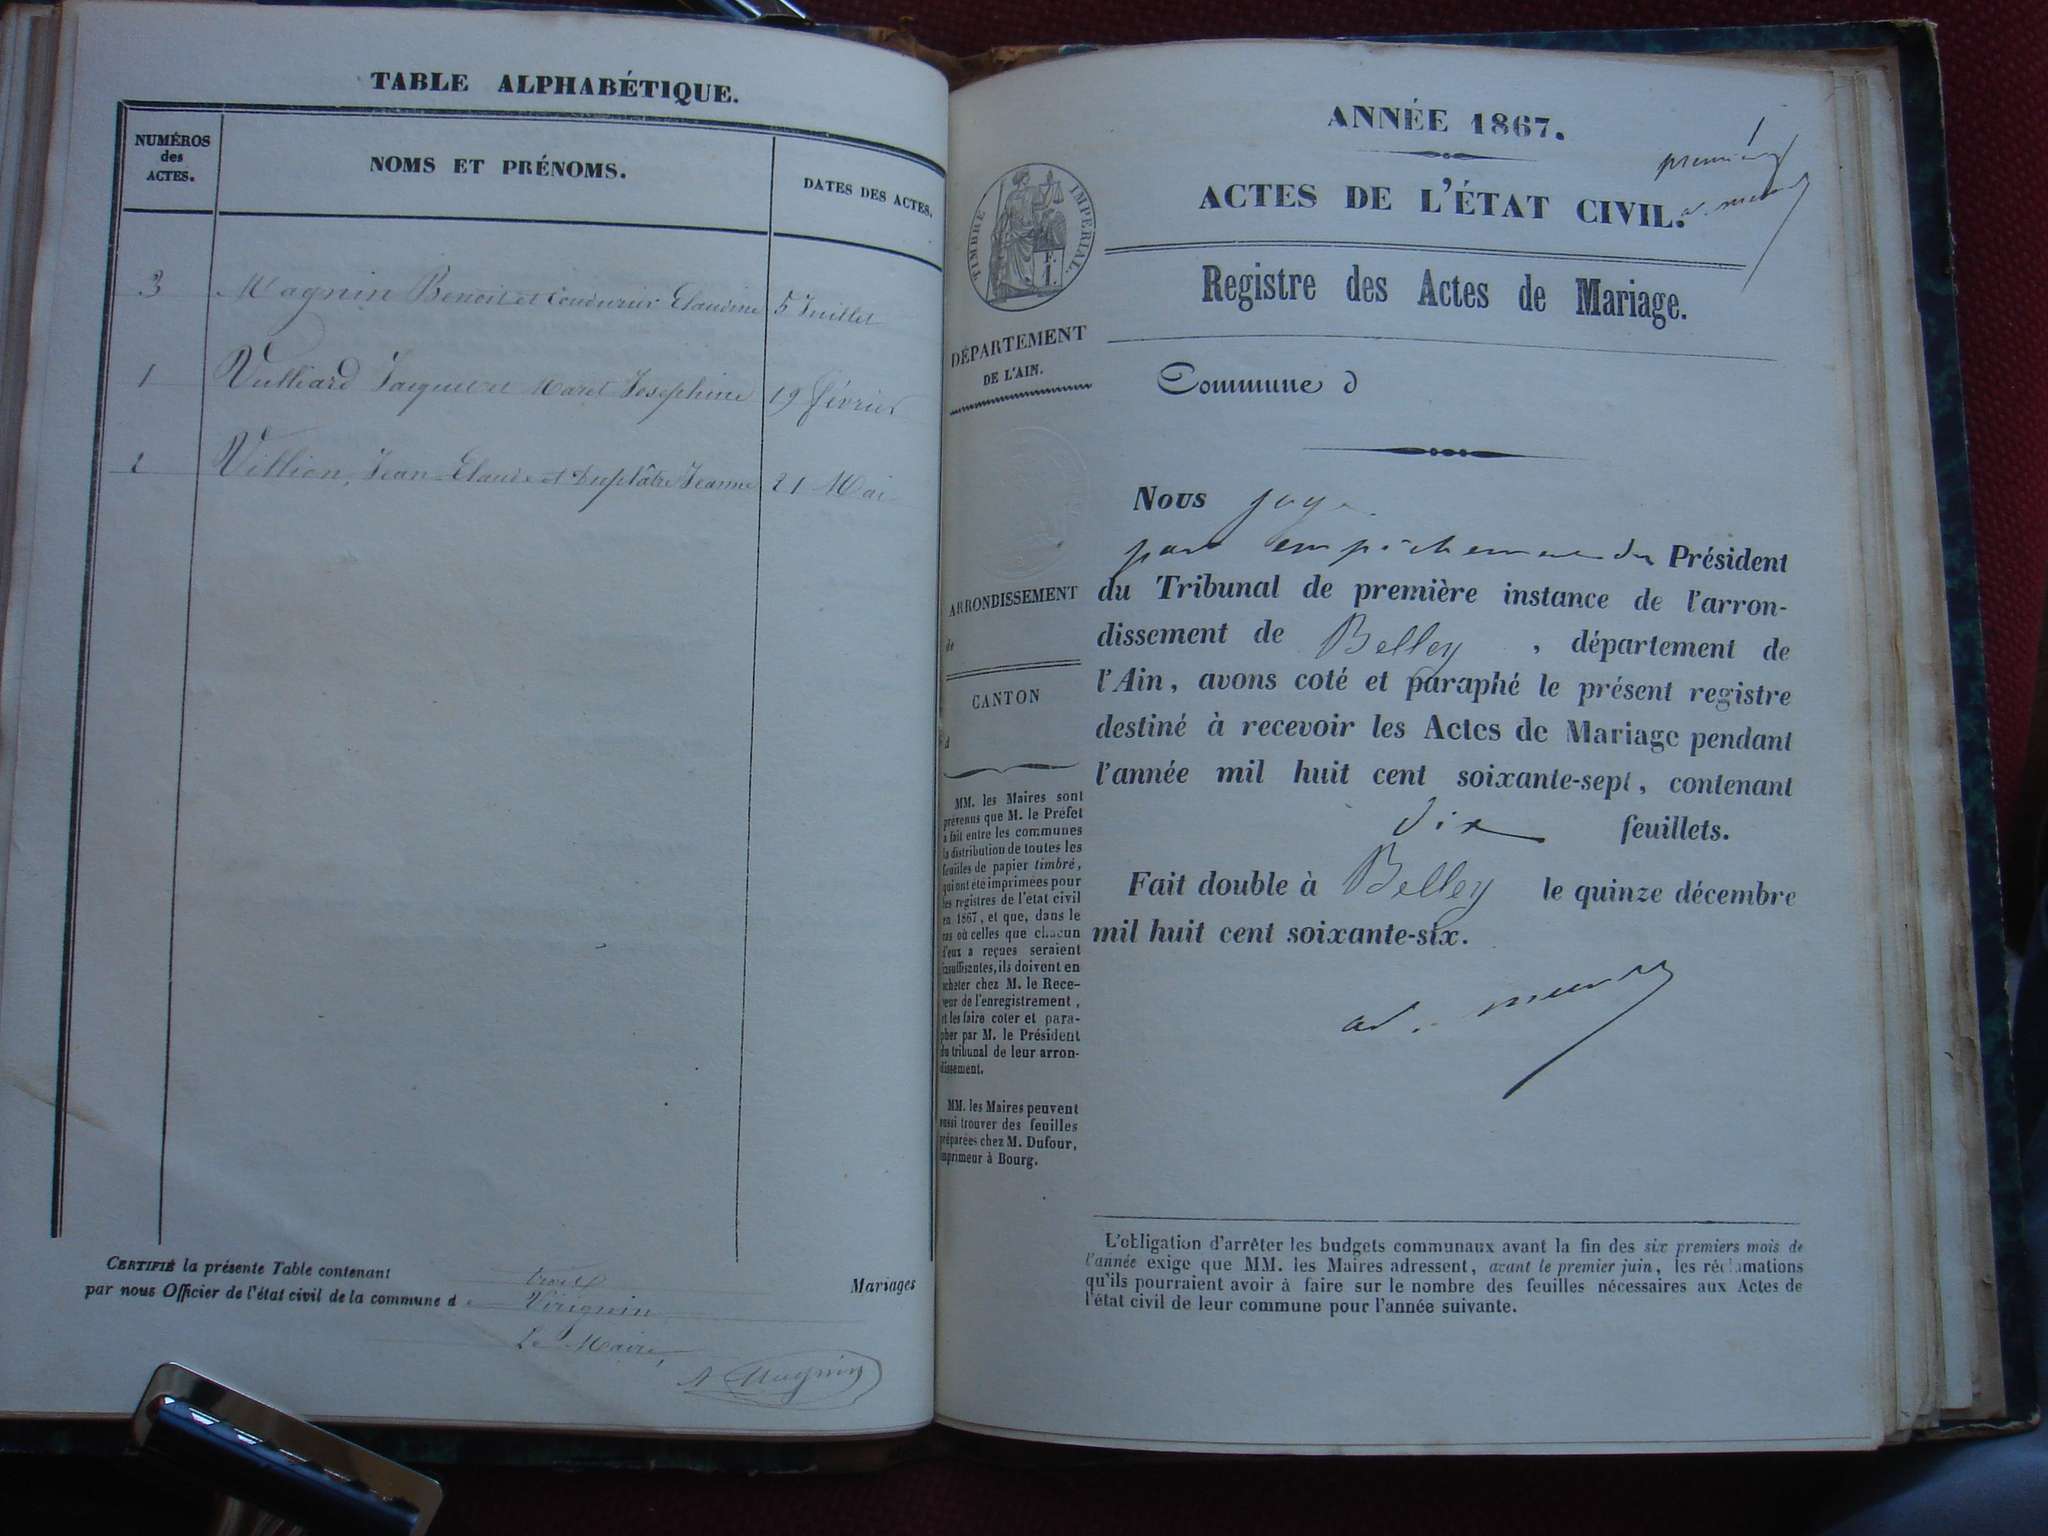 TABLE ALPHABÉTIQUE.
NUMÉROS
des
ACTES.
NOMS ET PRÉNOMS.
DATES DES ACTES.
3 Magnin Benoit et Couturier Claudine 5 Juillet
1 Vulliard Jacques et Maret Josephine 19 février
2 Villion, Jean-Claude et Duplâtre Jeanne 21 Mai
CERTIFIÉ la présente Table contenant trois Mariages
par nous Officier de l'état civil de la commune de Virignin
Le Maire,
A Magnin
ANNÉE 1867.
1
premier
ACTES DE L'ÉTAT CIVIL.
Registre des Actes de Mariage.
TIMBRE IMPÉRIAL.
F.
1.
DÉPARTEMENT
DE L'AIN.
ARRONDISSEMENT
de
CANTON
d
MM. les Maires sont
prévenus que M. le Préfet
a fait entre les communes
la distribution de toutes les
feuilles de papier timbré,
qui ont été imprimées pour
les registres de l'état civil
en 1867, et que, dans le
cas où celles que chacun
d'eux a reçues seraient
insuffisantes, ils doivent en
acheter chez M. le Rece-
veur de l'enregistrement,
et les faire coter et para-
pher par M. le Président
du tribunal de leur arron-
dissement.
MM. les Maires peuvent
aussi trouver des feuilles
préparées chez M. Dufour,
imprimeur à Bourg.
Commune d
Nous juge
par empêchement du Président
du Tribunal de première instance de l'arron-
dissement de Belley, département de
l'Ain, avons coté et paraphé le présent registre
destiné à recevoir les Actes de Mariage pendant
l'année mil huit cent soixante-sept, contenant
dix feuillets.
Fait double à Belley le quinze décembre
mil huit cent soixante-six.
L'obligation d'arrêter les budgets communaux avant la fin des six premiers mois de
l'année exige que MM. les Maires adressent, avant le premier juin, les réclamations
qu'ils pourraient avoir à faire sur le nombre des feuilles nécessaires aux Actes de
l'état civil de leur commune pour l'année suivante.